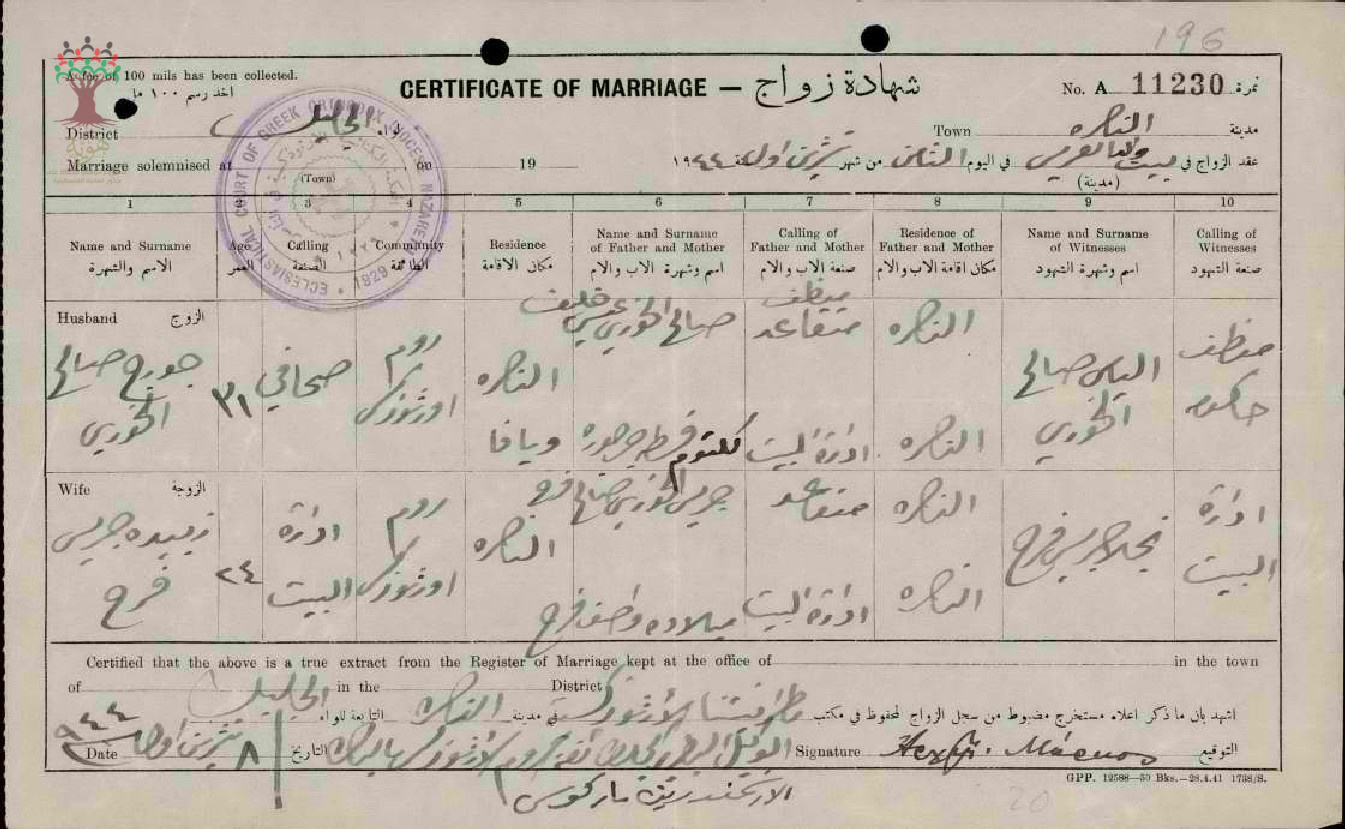 196
A fee of 100 mils has been collected.
اخذ رسم ١٠٠ ما
CERTIFICATE OF MARRIAGE — شهادة زواج
No. A 11230 نمرة
District الجليل لواء
Town الناصره مدينة
Marriage solemnised at on 19
عقد الزواج في بيت في اليوم الثاني من شهر تشرين اول سنة ١٩٤٤
(Town) (مدينة)
1 2 3 4 5 6 7 8 9 10
Name and Surname الاسم والشهرة
Age العمر
Calling الصنعة
Community الطائفة
Residence مكان الاقامة
Name and Surname of Father and Mother اسم وشهرة الاب والام
Calling of Father and Mother صنعة الاب والام
Residence of Father and Mother مكان اقامة الاب والام
Name and Surname of Witnesses اسم وشهرة الشهود
Calling of Witnesses صنعة الشهود
ECLESIASTICAL COURT OF GREEK ORTHODOX NAZARETH
Husband الزوج
جورج صالح الخوري
٣١
صحافي
روم ارثوذكس
الناصره ويافا
صالح الخوري
موظف متقاعد
الناصره
الياس صالح الخوري
موظف حكومه
كلثوم
ادارة البيت
الناصره
Wife الزوجة
زبيده جريس فرح
٢٤
ادارة البيت
روم ارثوذكس
الناصره
جريس الخوري صالح فرح
متقاعد
الناصره
نجلا جريس فرح
ادارة البيت
ميلاده واصف فرح
ادارة البيت
الناصره
Certified that the above is a true extract from the Register of Marriage kept at the office of in the town
of in the District
اشهد بان ما ذكر اعلاه مستخرج مضبوط من سجل الزواج المحفوظ في مكتب مطرانيتنا الارثوذكسية في مدينة الناصره التابعة للواء الجليل
Date ٨ تشرين اول ٩٤٤ التاريخ
Signature التوقيع
الارشمندريت ماركوس
GPP. 12588—50 Bks.—28.4.41 1738/S.
20